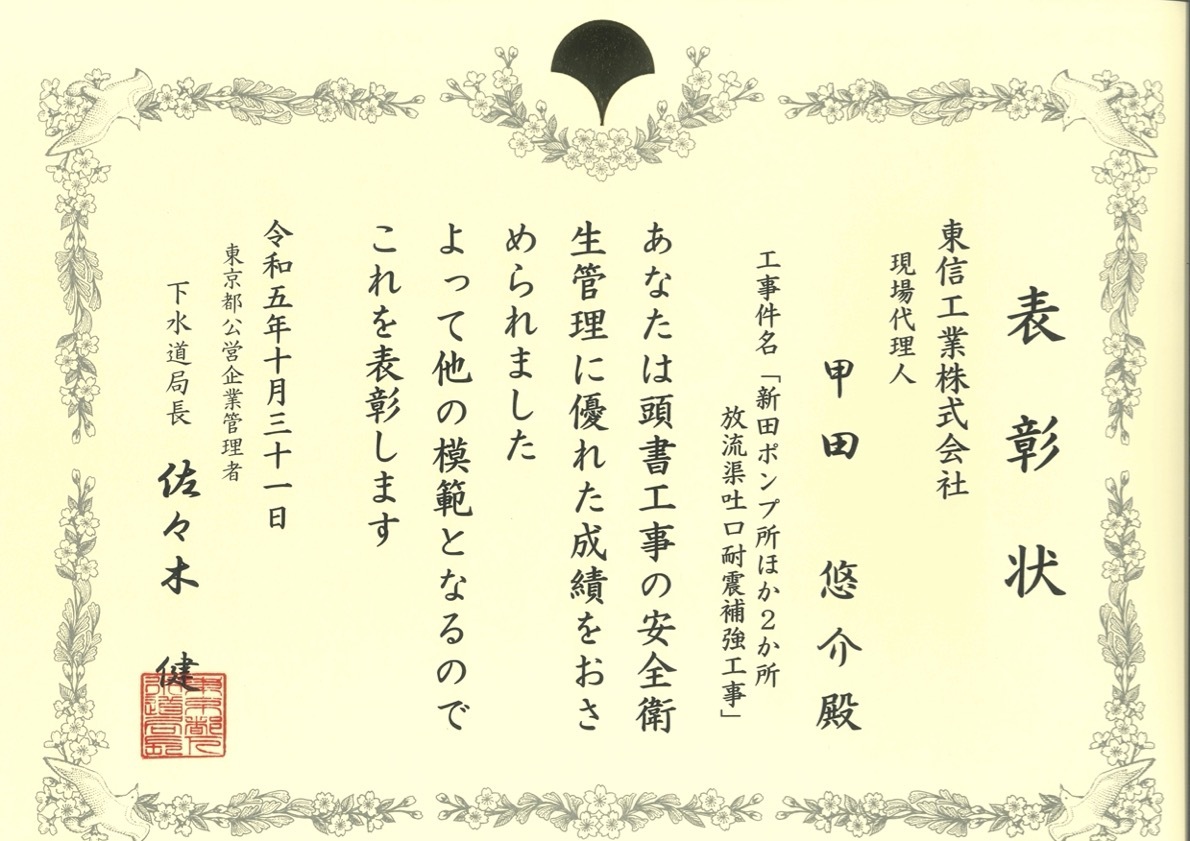 表彰状
東信工業株式会社
現場代理人
甲田 悠介殿
工事件名「新田ポンプ所ほか2か所
放流渠吐口耐震補強工事」
あなたは頭書工事の安全衛
生管理に優れた成績をおさ
められました
よって他の模範となるので
これを表彰します
令和五年十月三十一日
東京都公営企業管理者
下水道局長 佐々木 健